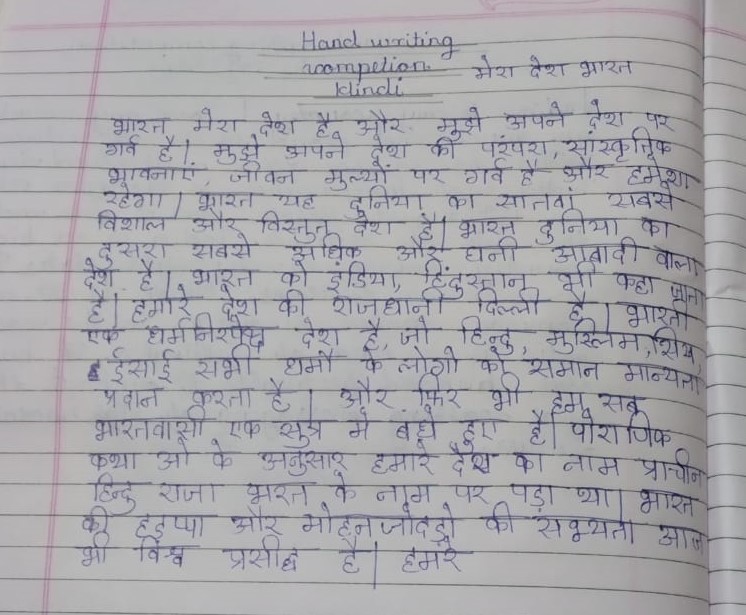 Hand writing
compition
Hindi
मेरा देश भारत
भारत मेरा देश है और मुझे अपने देश पर
गर्व है। मुझे अपने देश की परंपरा, सांस्कृतिक
भावनाएं, जीवन मुल्यों पर गर्व है और हमेशा
रहेगा। भारत यह दुनिया का सातवां सबसे
विशाल और विस्तुत देश है। भारत दुनिया का
दुसरा सबसे अधिक और घनी आबादी वाला
देश है। भारत को इंडिया, हिंदुस्तान भी कहा जाता
है। हमारे देश की राजधानी दिल्ली है। भारत
एक धर्मनिरपेक्ष देश है, जो हिन्दु, मुस्लिम, सिख,
ईसाई सभी धर्मो के लोगो को समान मान्यता
प्रदान करता है। और फिर भी हम सब
भारतवासी एक सुत्र मे बंधे हुए है। पोराणिक
कथा ओ के अनुसार हमारे देश का नाम प्राचीन
हिन्दु राजा भरत के नाम पर पड़ा था। भारत
की हड़प्पा और मोहनजोदड़ो की संभ्यता आज
भी विश्व प्रसीध है। हमरे